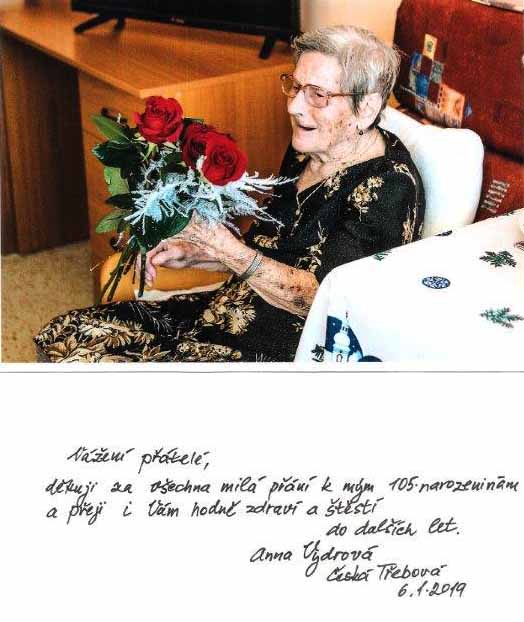 Vážení přátelé,
děkuji za všechna milá přání k mým 105.narozeninám
a přeji i Vám hodně zdraví a štěstí
do dalších let.
Anna Vydrová
Česká Třebová
6.1.2019